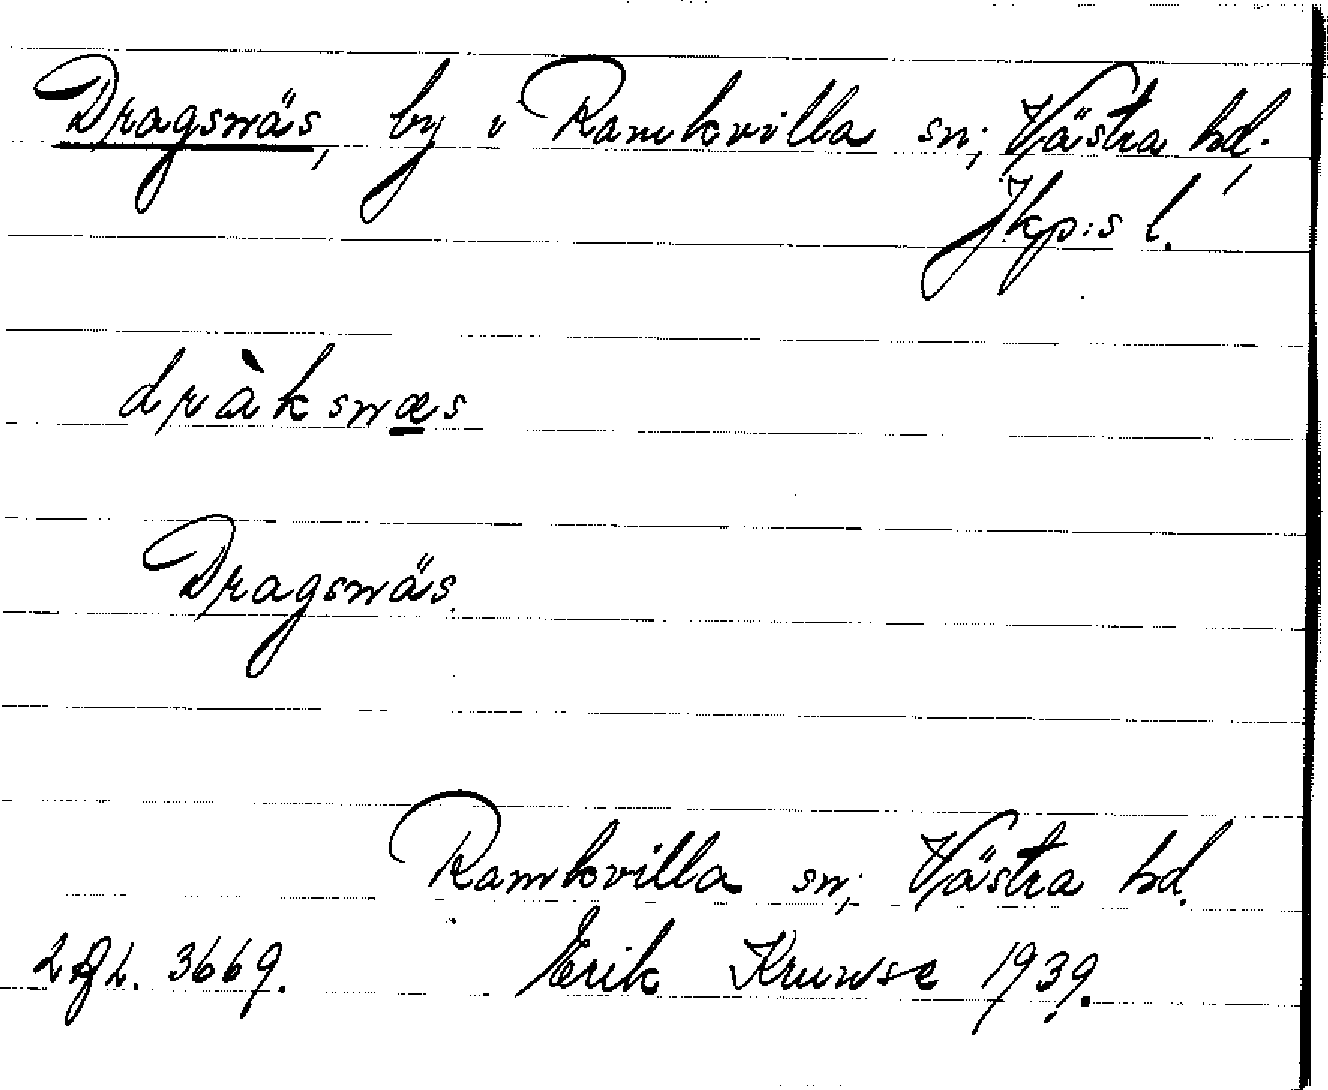 Dragsnäs, by i Ramkvilla sn; Västra hd.,
Jkp:s l.
dràksnæs
Dragsnäs.
Ramkvilla sn; Västra hd.
3669. Erik Kruuse 1939.